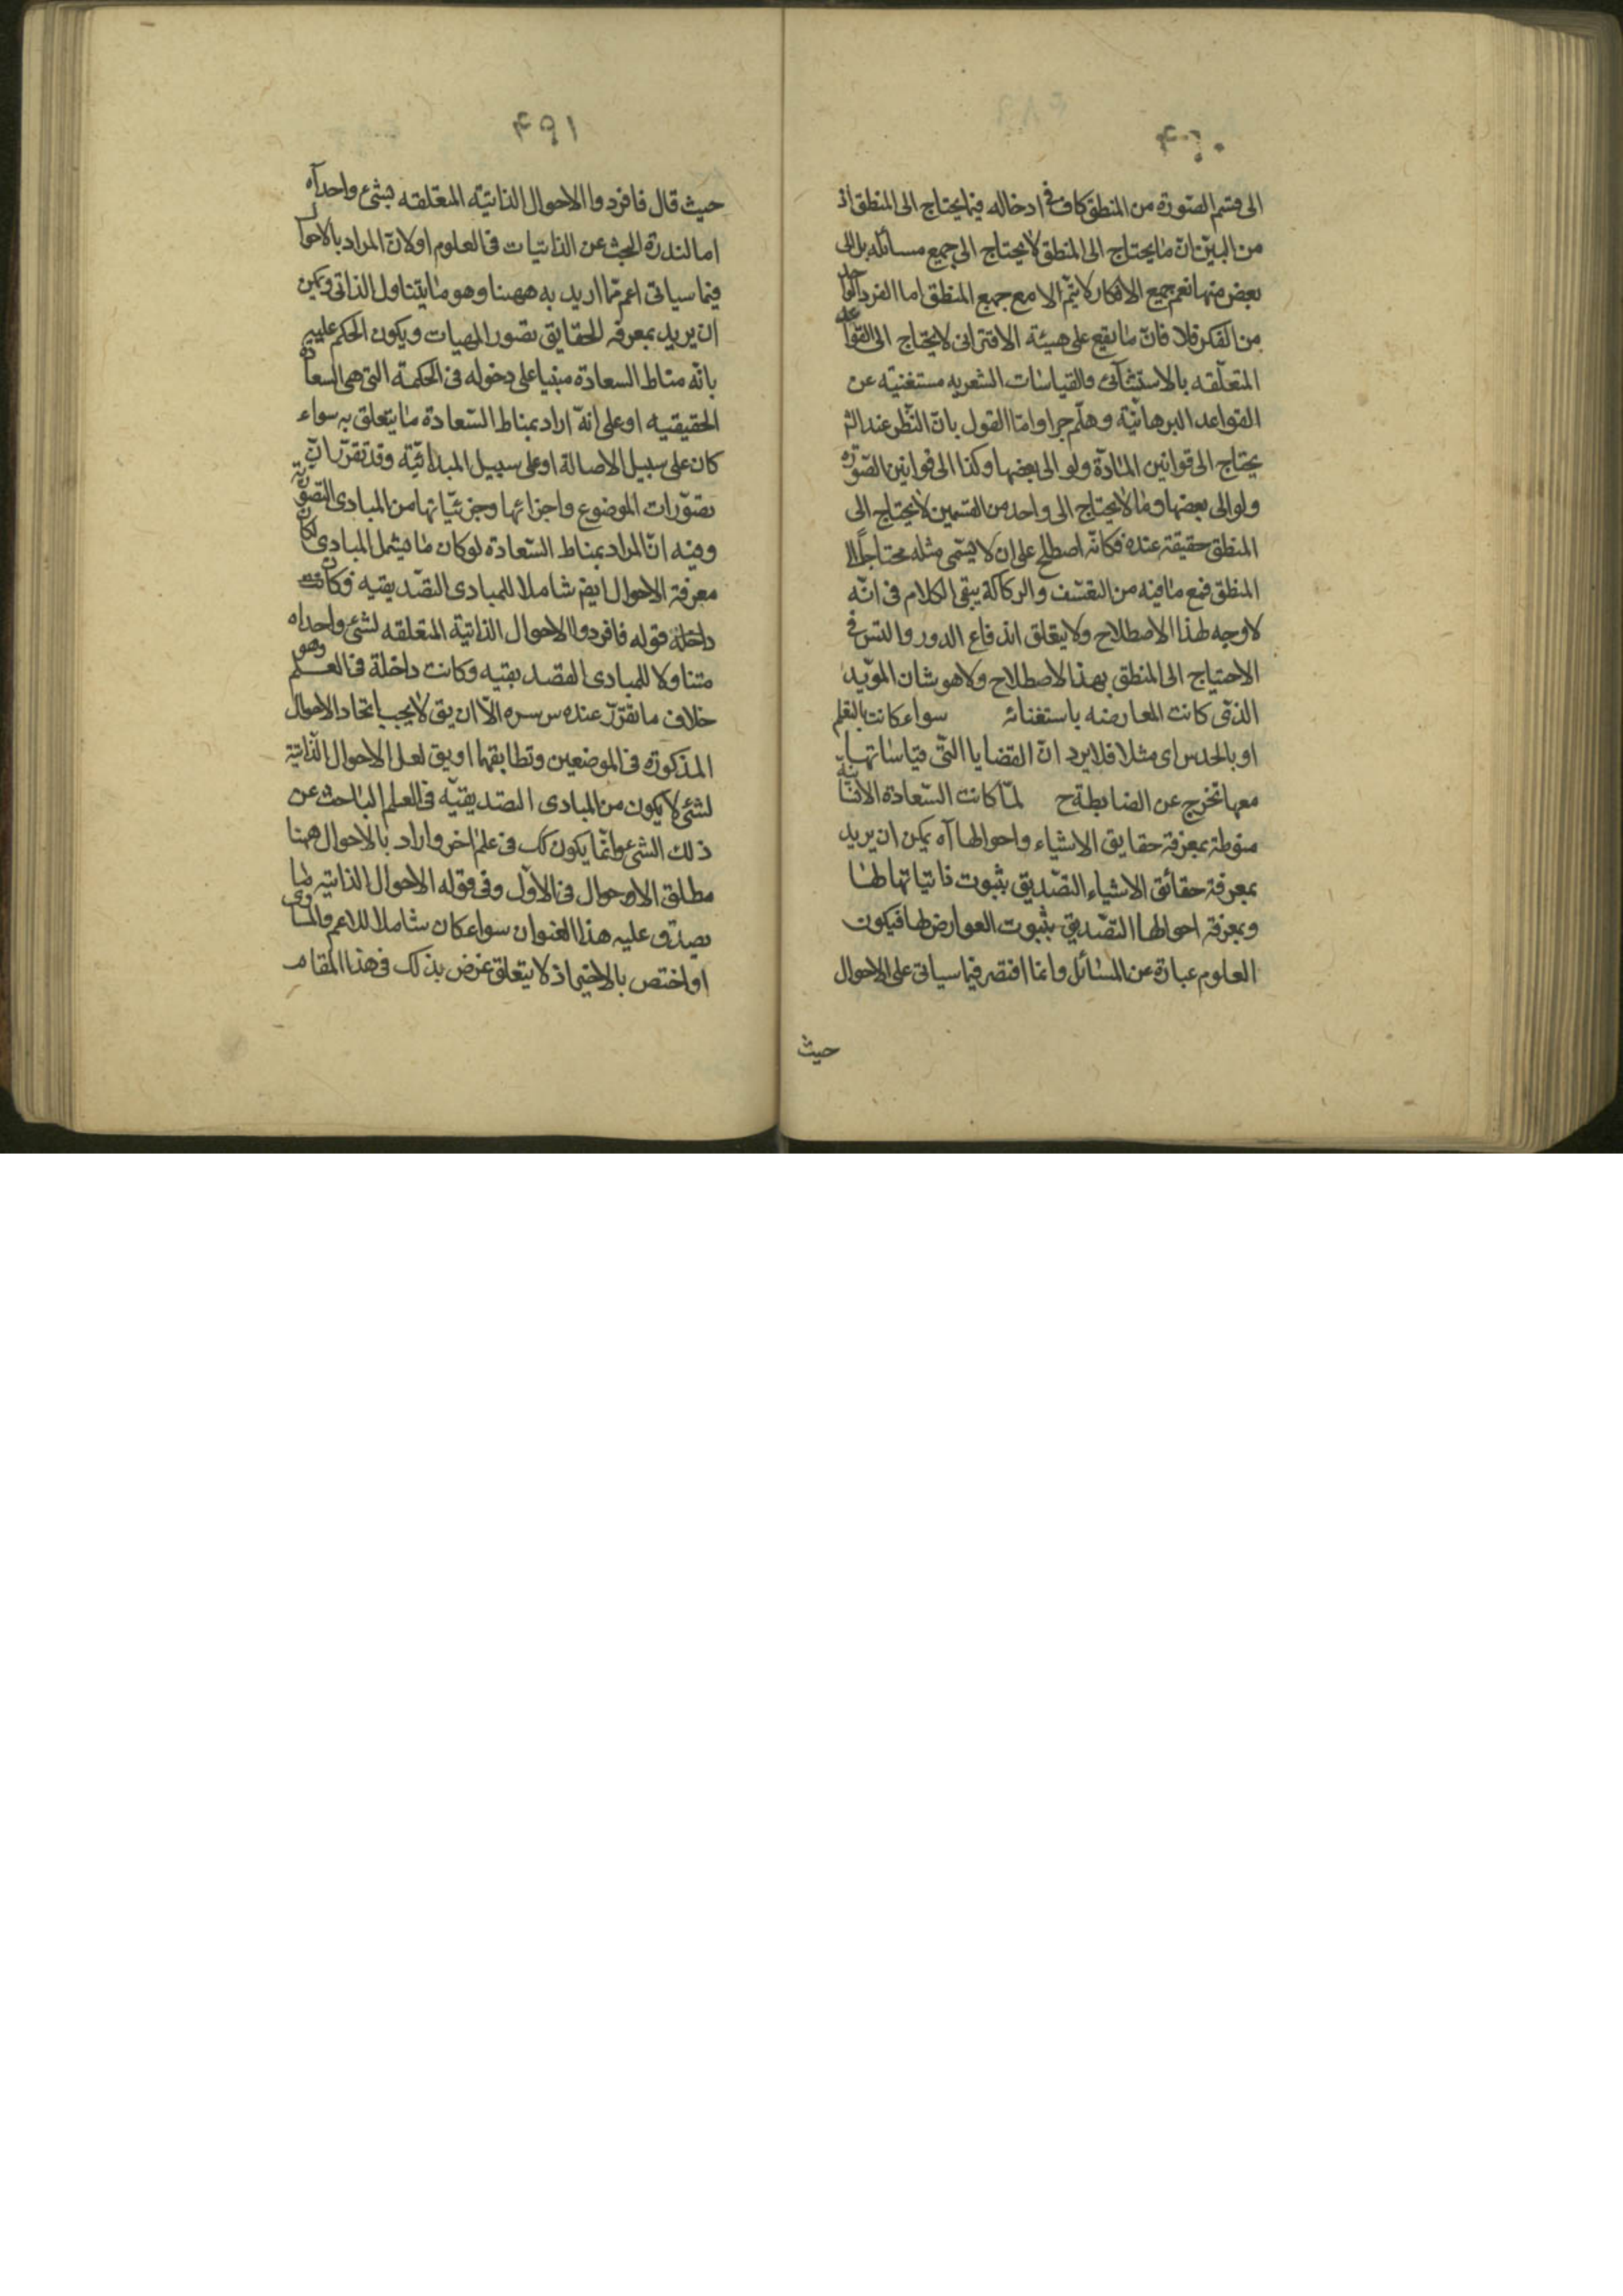 ۴۹۰
الى قسم الصورة من المنطق كاف فى ادخاله فيما يحتاج الى المنطق اذ
من البيّن انّ ما يحتاج الى المنطق لا يحتاج الى جميع مسائله بل الى
بعض منها نعم جميع الافكار لا يتم الا مع جميع المنطق اما الفرد الواحد
من الفكر فلا فانّ ما يقع على هيئة الاقترانى لا يحتاج الى القواعد
المتعلّقه بالاستثنائى والقياسات الشعريه مستغنيّه عن
القواعد البرهانيّة وهلّم جرا وامّا القول بانّ النّظر عند الشر
يحتاج الى قوانين المادّة ولو الى بعضها وكذا الى قوانين الصّورة
ولو الى بعضها وما لا يحتاج الى واحد من القسمين لا يحتاج الى
المنطق حقيقة عنده فكانّه اصطلح على ان لا يسمّى مثله محتاجاً الى
المنطق فمع ما فيه من التعسّف والركاكة يبقى الكلام فى انّه
لا وجه لهذا الاصطلاح ولا يتعلق اندفاع الدور والتس فى
الاحتياج الى المنطق بهذا الاصطلاح ولا هو شان المويّد
الذى كانت المعارضه باستغنائه سواء كانت بالتعلم
او بالحدس اى مثلا فلا يرد انّ القضايا التّى قياساتها
معها تخرج عن الضابطة ح لمّا كانت السّعادة الانسانيّة
منوطة بمعرفة حقايق الاشياء واحوالها آه يمكن ان يريد
بمعرفة حقائق الاشياء التصّديق بثبوت ذاتياتها لها
وبمعرفة احوالها التصّديق بثبوت العوارض لها فيكون
العلوم عبارة عن المسائل وانما اقتصر فيما سياتى على الاحوال
حيث
۴۹۱
حيث قال فافردوا الاحوال الذاتيّة المتعلقه بشئ واحد آه
اما لندرة البحث عن الذاتيات فى العلوم او لانّ المراد بالاحوال
فيما سياتى اعم ممّا اريد به ههنا وهو ما يتناول الذاتى ويمكن
ان يريد بمعرفه الحقايق تصور المهيات ويكون الحكم عليه
بانّه مناط السعادة مبنيا على دخوله فى الحكمة التى هى السعادة
الحقيقيه او على انهّ اراد بمناط السّعادة ما يتعلق به سواء
كان على سبيل الاصالة او على سبيل المبدائيّة وقد تقرّر انّ
تصوّرات الموضوع واجزائها وجزئيّاتها من المبادى التصوّريّة
وفيه انّ المراد بمناط السّعادة لو كان ما يشمل المبادى لكان
معرفة الاحوال ايضا شاملا للمبادى التصّديقيه فكانت
داخلة قوله فافردوا الاحوال الذاتيّة المتعلقه لشئ واحد اه
متناولا للمبادى التصديقيه وكانت داخلة فى العلم وهو
خلاف ما تقرّر عنده س سره الّا ان يق لا يجب اتحاد الاحوال
المذكورة فى الموضعين وتطابقهما او يق لعل الاحوال الذّاتيّة
لشئ لا يكون من المبادى التصديقيّه فى العلم الباحث عن
ذلك الشئ وانّما يكون كك فى علم اخر واراد بالاحوال ههنا
مطلق الاحوال فى الاوّل وفى قوله الاحوال الذاتيه لما
يصدق عليه هذا العنوان سواء كان شاملا للاعم والمساوى
او اختص بالاخير اذ لا يتعلق غرض بذلك فى هذا المقام